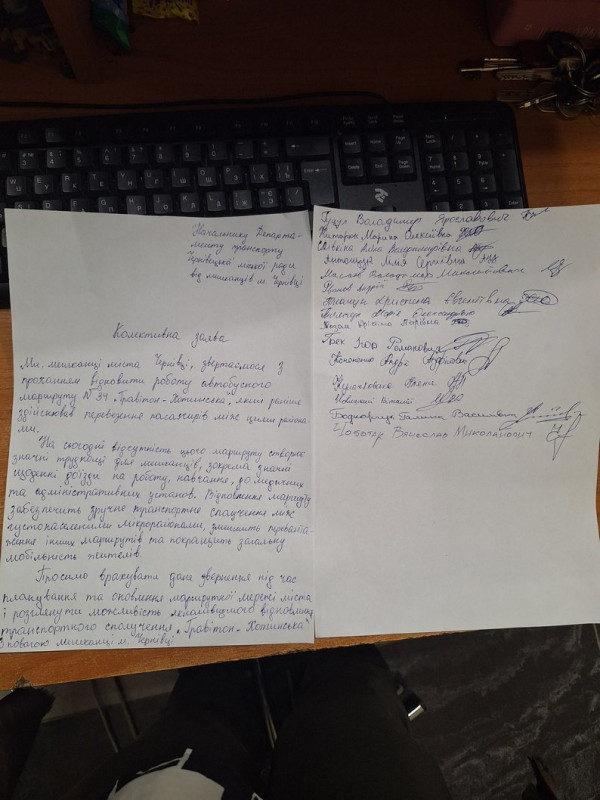 Начальнику Департа-
менту транспорту
Чернівецької міської ради
від мешканців м. Чернівці
Колективна заява
Ми, мешканці міста Чернівці, звертаємося з
проханням відновити роботу автобусного
маршруту №34 "Гравітон-Хотинська", який раніше
здійснював перевезення пасажирів між цими района-
ми.
На сьогодні відсутність цього маршруту створює
значні труднощі для мешканців, зокрема значні
щоденні доїзди на роботу, навчання, до медичних
та адміністративних установ. Відновлення маршруту
забезпечить зручне транспортне сполучення між
густонаселеними мікрорайонами, зменшить перевата-
ження інших маршрутів та покращить загальну
мобільність жителів.
Просимо врахувати дане звернення під час
планування та оновлення маршрутної мережі міста
і розглянути можливість якнайшвидшого відновлення
транспортного сполучення „Гравітон-Хотинська"
З повагою мешканці м. Чернівці
Володимир Ярославович
Марина Олексіївна
Алла
Лілія Сергіївна
Володимир
Андрій
Христина Євгеніївна
Марія Олександрівна
Грек Ігор Романович
Кононенко Андрій
Боднарюк Галина Василівн
Чоботар Вячеслав Миколайович